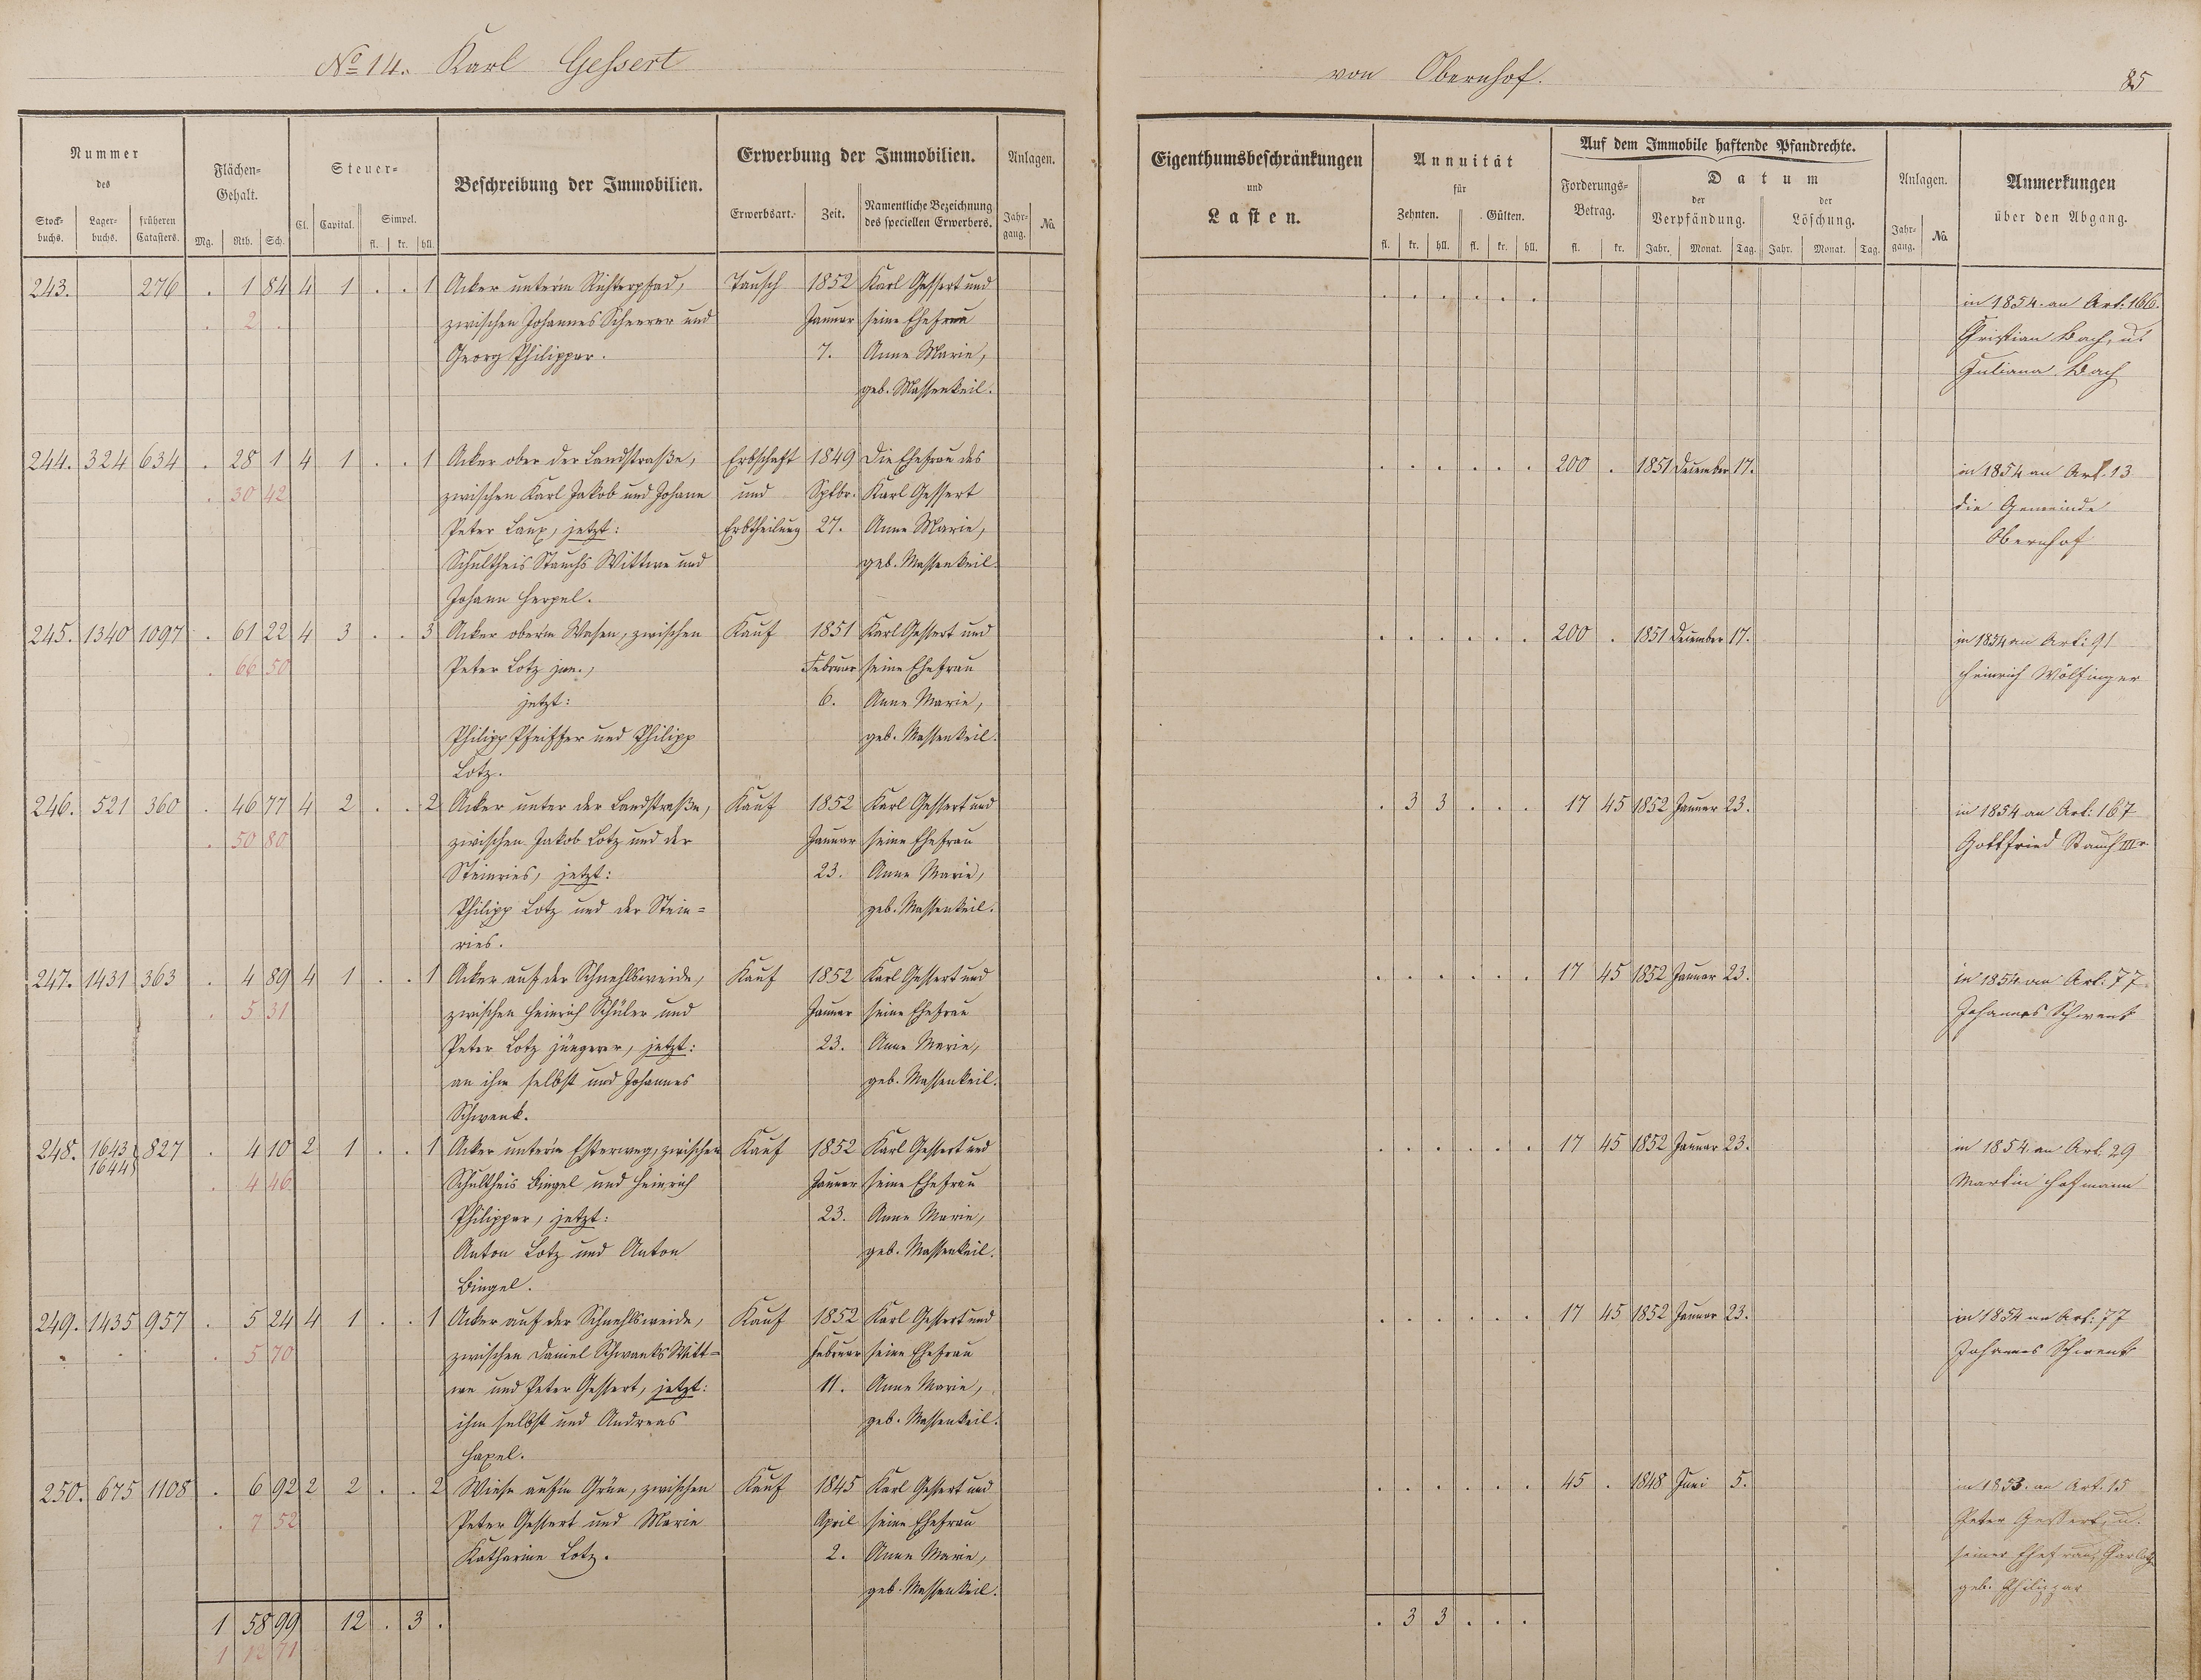 No 14. Karl Gessert
von Obernhof.
85
Nummer des
Stockbuchs. Lagerbuchs. früheren Catasters.
Flächen-Gehalt.
Mg. Rth. Sch.
Steuer-
Cl. Capital. Simpel.
fl. kr. hll.
Beschreibung der Immobilien.
Erwerbung der Immobilien.
Erwerbsart. Zeit. Namentliche Bezeichnung des speciellen Erwerbers.
Anlagen.
Jahrgang. No.
Eigenthumsbeschränkungen
und
Lasten.
Annuität
für
Zehnten. Gülten.
fl. kr. hll. fl. kr. hll.
Auf dem Immobile haftende Pfandrechte.
Forderungs-Betrag.
fl. kr.
Datum
der Verpfändung. der Löschung.
Jahr. Monat. Tag. Jahr. Monat. Tag.
Anlagen.
Jahrgang. No.
Anmerkungen
über den Abgang.
243. 276 . 1 84 4 1 . . 1 Acker unterm Richterpfad, Tausch 1852 Karl Gessert und
. 2 . zwischen Johannes Scheerer und Januar seine Ehefrau
Georg Philippar. 7. Anne Marie,
geb. Massenkeil.
. . . . . .
in 1854 an Art. 166.
Christian Bach, us
Juliana Bach
244. 324 634 . 28 1 4 1 . . 1 Acker ober der Landstraße, Erbschaft 1849 Die Ehefrau des
. 30 42 zwischen Karl Jakob und Johann und Sptbr. Karl Gessert
Peter Laux, jetzt: Erbtheilung 27. Anne Marie,
Schultheis Stauchs Wittwe und geb. Massenkeil.
Johann Herpel.
. . . . . . 200 . 1851 December 17.
in 1854 an Art. 13
die Gemeinde
Obernhof
245. 1340 1097 . 61 22 4 3 . . 3 Acker oberm Wasen, zwischen Kauf 1851 Karl Gessert und
. 66 50 Peter Lotz jun., Februar seine Ehefrau
jetzt: 6. Anne Marie,
Philipp Pfeiffer und Philipp geb. Massenkeil.
Lotz.
. . . . . . 200 . 1851 December 17.
in 1854 an Art: 91
Heinrich Wölfinger
246. 521 360 . 46 77 4 2 . . 2 Acker unter der Landstraße, Kauf 1852 Karl Gessert und
. 50 80 zwischen Jakob Lotz und der Januar seine Ehefrau
Steinries, jetzt: 23. Anne Marie,
Philipp Lotz und der Stein= geb. Massenkeil.
ries.
. 3 3 . . . 17 45 1852 Januar 23.
in 1854 an Art: 167
Gottfried Stauch IIIr
247. 1431 363 . 4 89 4 1 . . 1 Acker auf der Schnehlsweide, Kauf 1852 Karl Gessert und
. 5 31 zwischen Heinrich Schüler und Januar seine Ehefrau
Peter Lotz jüngerer, jetzt: 23. Anne Marie,
an ihm selbst und Johannes geb. Massenkeil.
Schwenk.
. . . . . . 17 45 1852 Januar 23.
in 1854 an Art: 77
Johannes Schwenk
248. 1643 1644 827 . 4 10 2 1 . . 1 Acker unterm Esterweg, zwischen Kauf 1852 Karl Gessert und
. 4 46 Schultheis Bingel und Heinrich Januar seine Ehefrau
Philippar, jetzt: 23. Anne Marie,
Anton Lotz und Anton geb. Massenkeil.
Bingel.
. . . . . . 17 45 1852 Januar 23.
in 1854 an Art. 29
Martin Hofmann
249. 1435 957 . 5 24 4 1 . . 1 Acker auf der Schnehlsweide, Kauf 1852 Karl Gessert und
. 5 70 zwischen Daniel Schwanks Witt= Februar seine Ehefrau
we und Peter Gessert, jetzt: 11. Anne Marie,
ihm selbst und Andreas geb. Massenkeil.
. . . . . . 17 45 1852 Januar 23.
in 1854 an Art: 77
Johannes Schwenk
250. 675 1108 . 6 92 2 2 . . 2 Wiese aufm Grün, zwischen Kauf 1845 Karl Gessert und
. 7 52 Peter Gessert und Marie April seine Ehefrau
Katharine Lotz. 2. Anne Marie,
geb. Massenkeil.
. . . . . . 45 . 1848 Juni 5.
in 1853 an Art. 15
Peter Gessert, u.
seiner Ehefrau
geb. Philippar
1 58 99 12 . 3 .
. 3 3 . . .